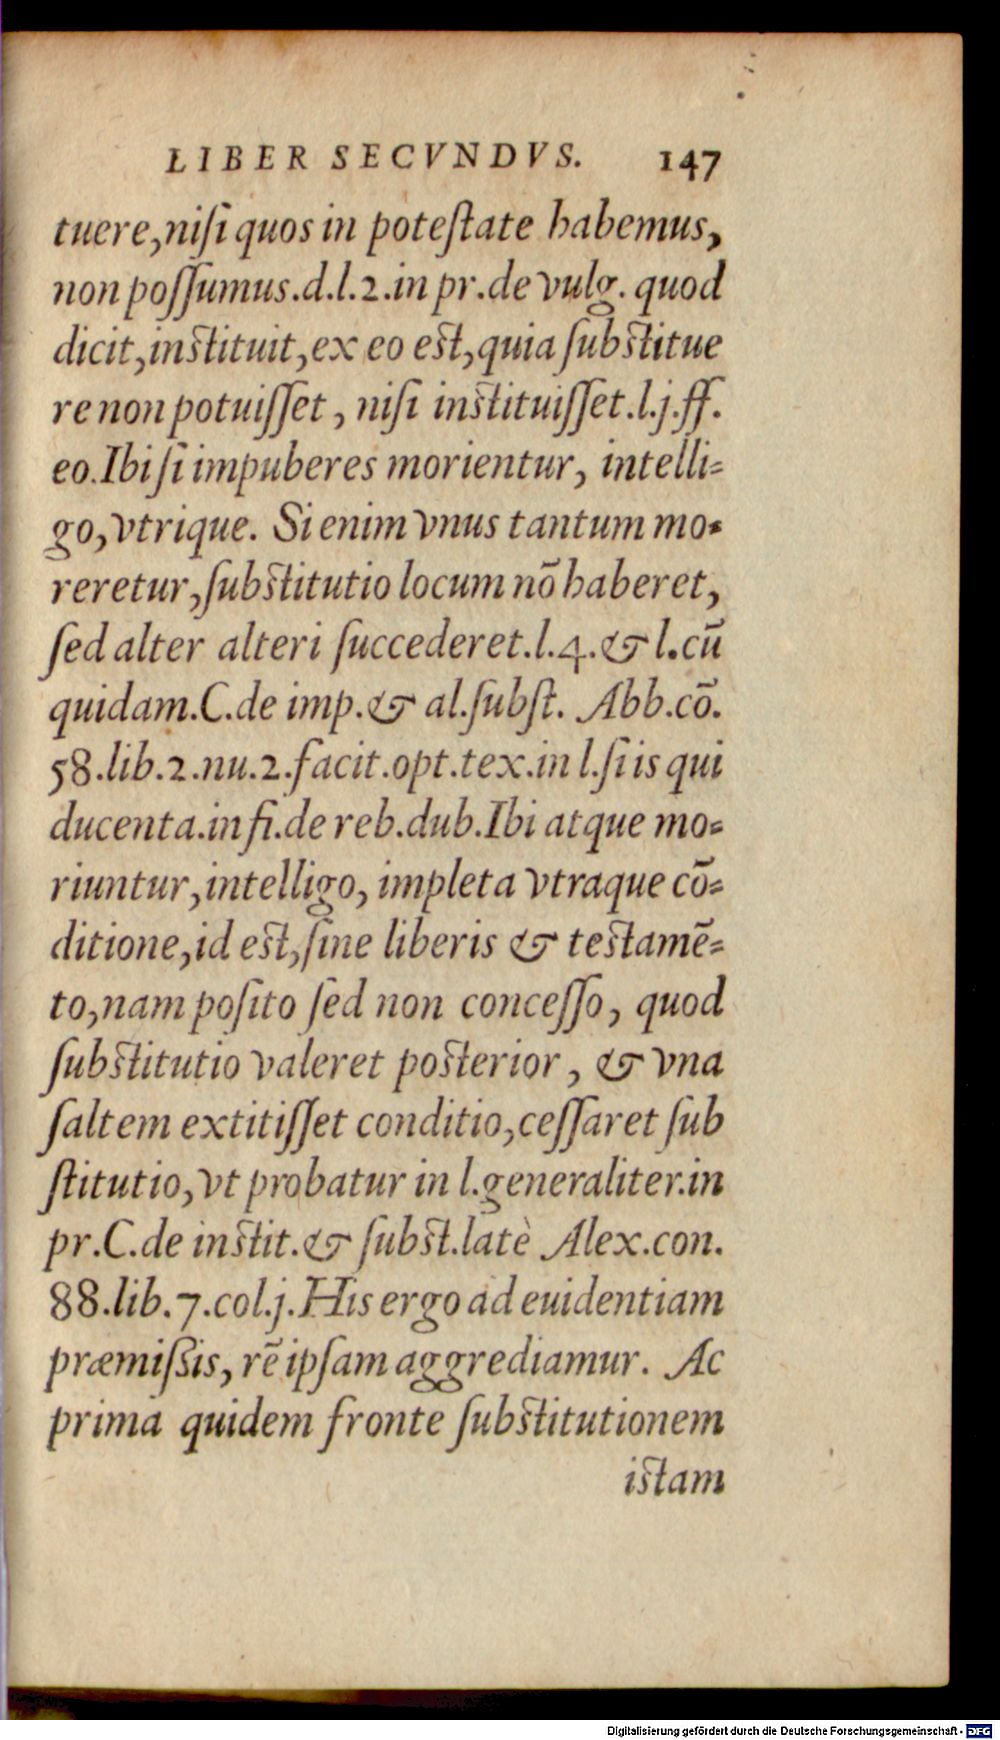 LIBER SECVNDVS. 147
tuere,niſi quos in poteſtate habemus,
non poſſumus.d.l.2.in pr.de vulg. quod
dicit,inſtituit,ex eo eſt,quia ſubſtitue
re non potuiſſet, niſi inſtituiſſet.l.j.ff.
eo.Ibi ſi impuberes morientur, intelli-
go,vtrique. Si enim vnus tantum mo-
reretur,ſubſtitutio locum nō haberet,
ſed alter alteri ſuccederet.l.4.& l.cū
quidam.C.de imp.& al.ſubſt. Abb.cō.
58.lib.2.nu.2.facit.opt.tex.in l.ſi is qui
ducenta.in fi.de reb.dub.Ibi atque mo-
riuntur,intelligo, impleta vtraque cō-
ditione,id eſt,ſine liberis & teſtamē-
to,nam poſito ſed non conceſſo, quod
ſubſtitutio valeret poſterior, & vna
ſaltem extitiſſet conditio,ceſſaret ſub
ſtitutio,vt probatur in l.generaliter.in
pr.C.de inſtit.& ſubſt.latè Alex.con.
88.lib.7.col.j.His ergo ad euidentiam
præmiſsis, rē ipſam aggrediamur. Ac
prima quidem fronte ſubſtitutionem
iſtam
Digitalisierung gefördert durch die Deutsche Forschungsgemeinschaft - DFG